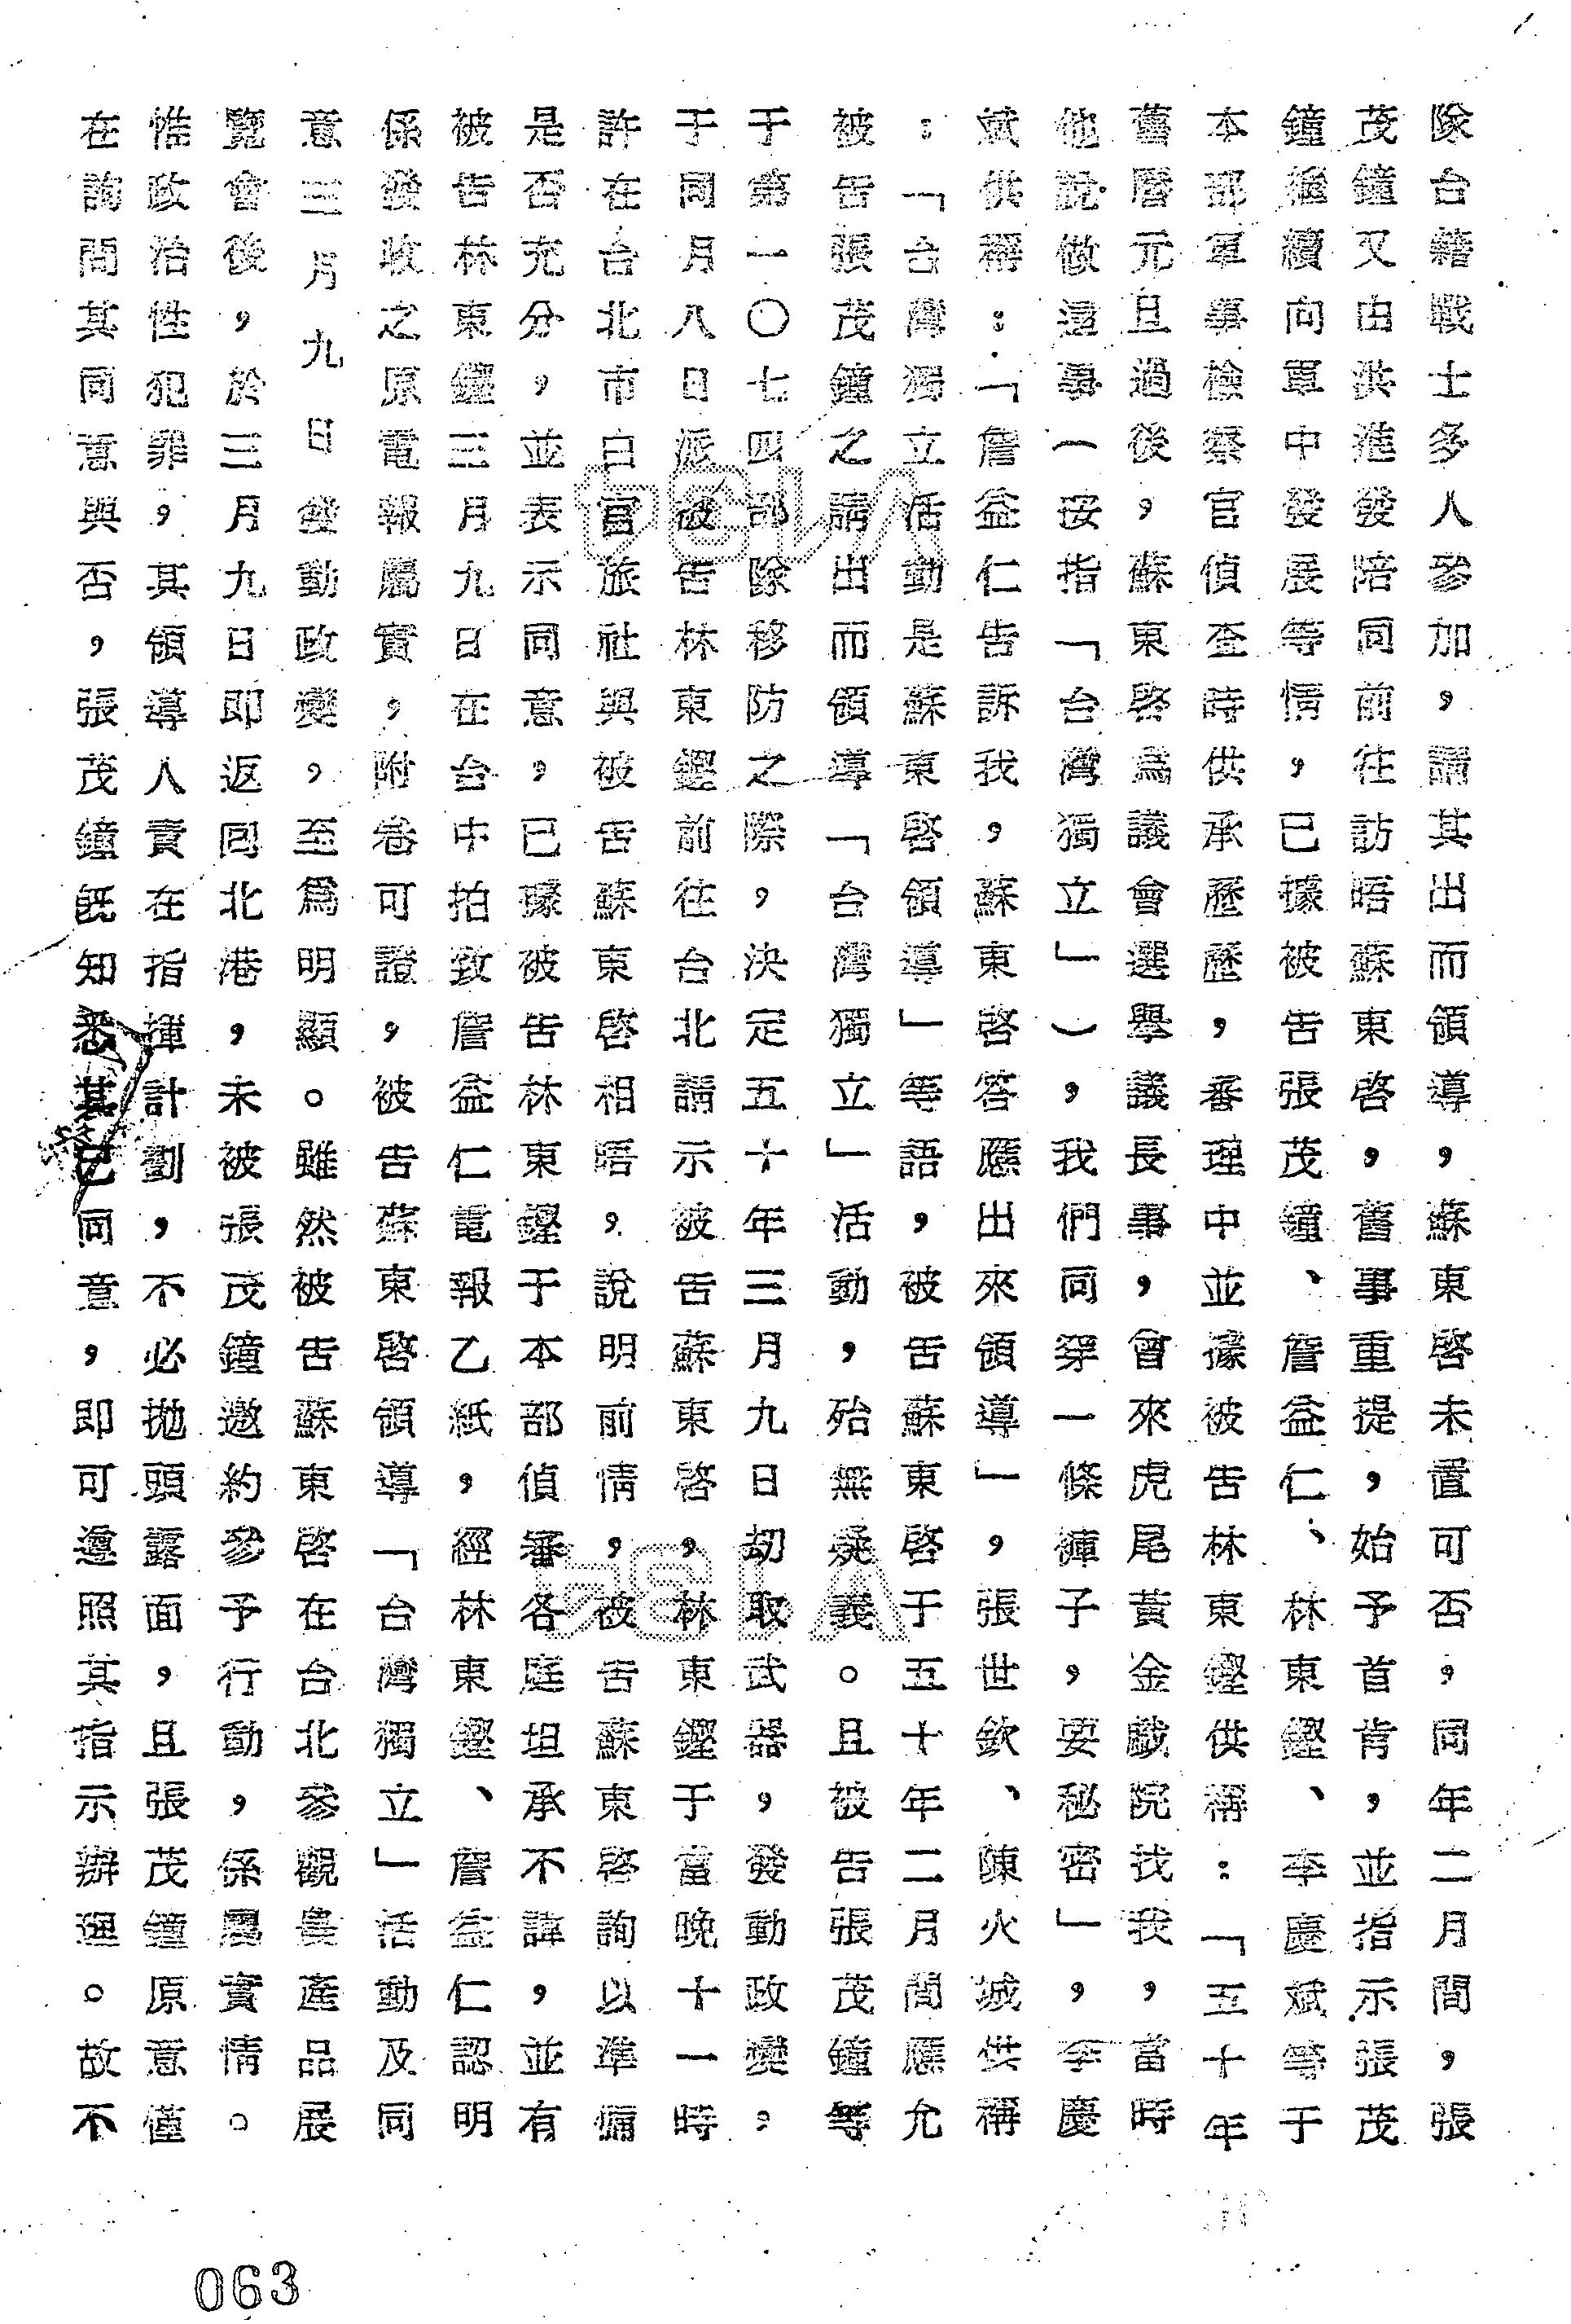 隊台籍戰士多人參加，請其出而領導，蘇東啓未置可否，同年二月間，張
茂鐘又由洪進發陪同前往訪晤蘇東啓，舊事重提，始予首肯，並指示張茂
鐘繼續向軍中發展等情，已據被告張茂鐘、詹益仁、林東鏗、李慶斌等于
本部軍事檢察官偵查時供承歷歷，審理中並據被告林東鏗供稱：「五十年
舊曆元旦過後，蘇東啓爲議會選舉議長事，會來虎尾黃金戲院找我，當時
他說做這事（按指「台灣獨立」），我們同穿一條褲子，要秘密」，李慶
斌供稱：「詹益仁告訴我，蘇東啓答應出來領導」，張世欽、陳火城供稱
：「台灣獨立活動是蘇東啓領導」等語，被告蘇東啓于五十年二月間應允
被告張茂鐘之請出而領導「台灣獨立」活動，殆無疑義。且被告張茂鐘等
于第一〇七四部隊移防之際，決定五十年三月九日刧取武器，發動政變，
于同月八日派被告林東鏗前往台北請示被告蘇東啓，林東鏗于當晚十一時
許在台北市白宮旅社與被告蘇東啓相晤，說明前情，被告蘇東啓詢以準備
是否充分，並表示同意，已據被告林東鏗于本部偵審各庭坦承不諱，並有
被告林東鏗三月九日在台中拍致詹益仁電報乙紙，經林東鏗、詹益仁認明
係發收之原電報屬實，附卷可證，被告蘇東啓領導「台灣獨立」活動及同
意三月九日發動政變，至爲明顯。雖然被告蘇東啓在台北參觀農產品展
覽會後，於三月九日即返回北港，未被張茂鐘邀約參予行動，係屬實情。
惟政治性犯罪，其領導人責在指揮計劃，不必拋頭露面，且張茂鐘原意僅
在詢問其同意與否，張茂鐘旣知悉其已同意，即可遵照其指示辦理。故不
063